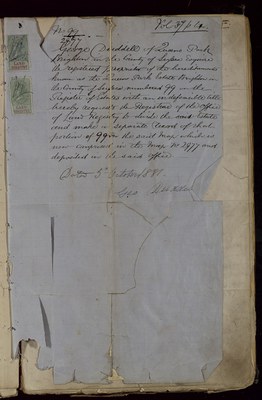 No 99
2977
Vol. 59 p 60
George Duddell of Queens Park
Brighton in the County of Sussex Esquire
the registered proprietor of the hereditaments
known as the Queens Park Estate Brighton in
the County of Sussex numbered 99 in the
Register of Estates with an indefeasible title
hereby requests the Registrar of the Office
of Land Registry to divide the said Estate
and make a separate Record of that
portion of 99 in the said map which is
now comprised in the Map No 2977 and
deposited in the said Office
Dated 5 October 1881